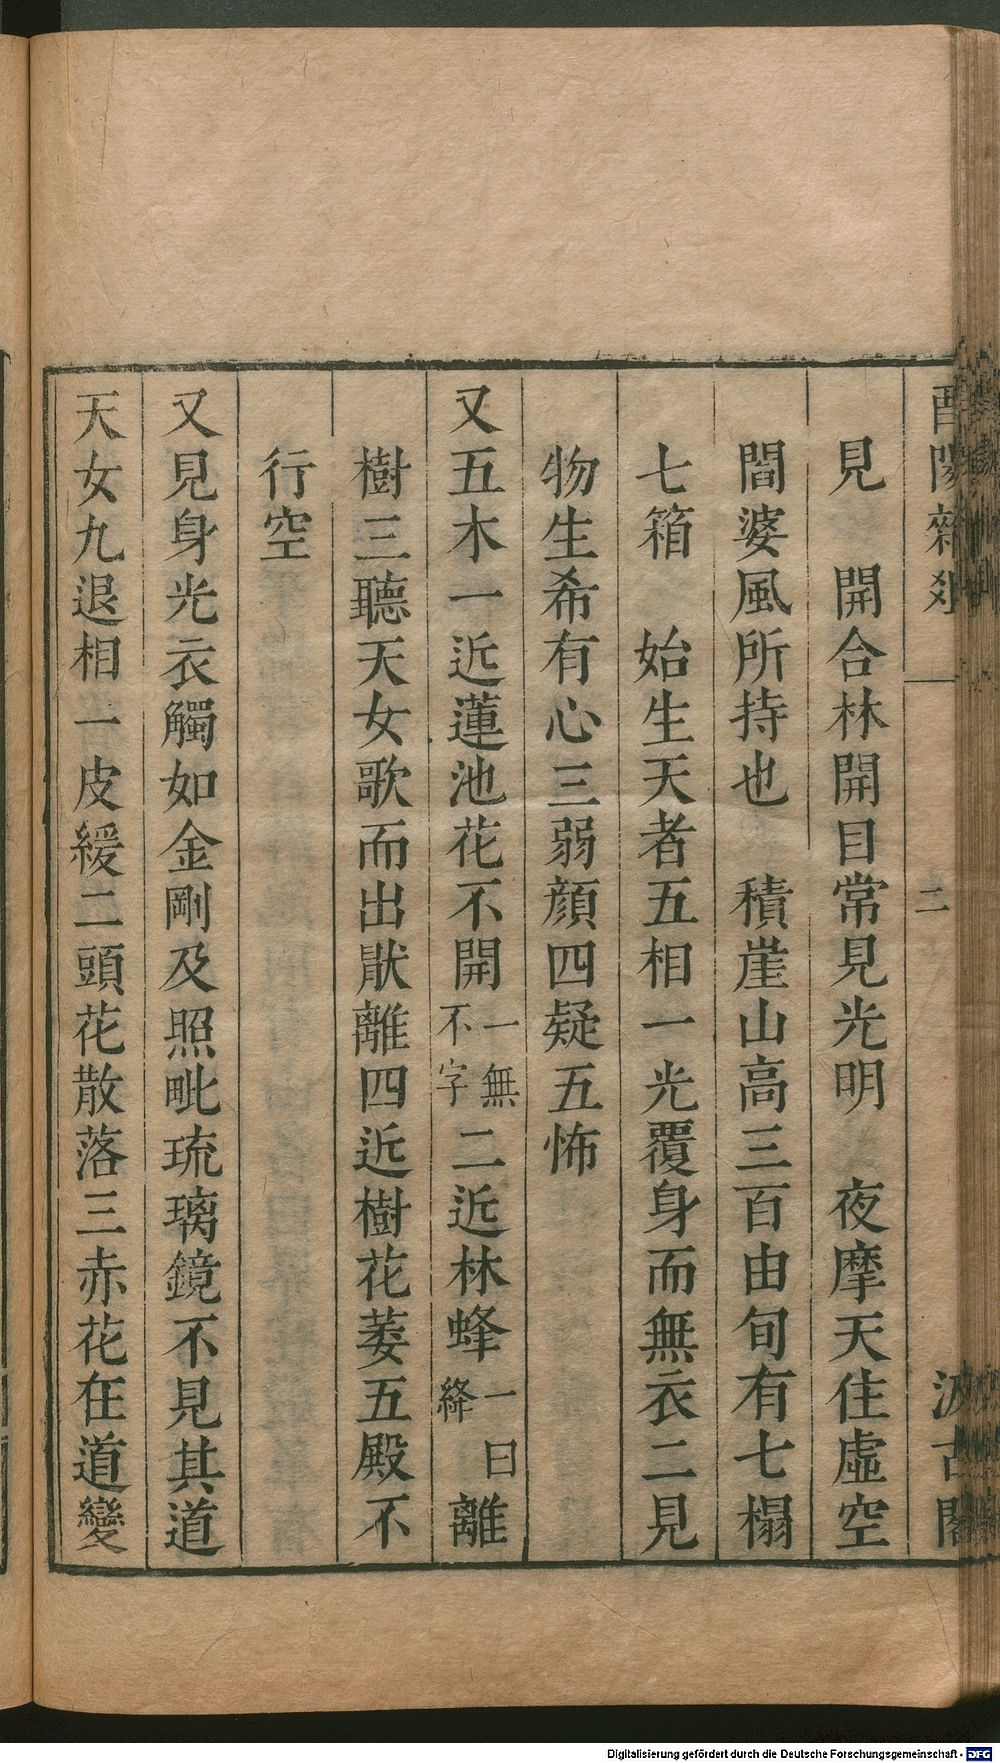 酉陽雜俎 二 汲古閣
見 開合林開目常見光明 夜摩天住虛空
閻婆風所持也 積崖山高三百由旬有七榻
七箱 始生天者五相一光覆身而無衣二見
物生希有心三弱顔四疑五怖
又五木一近蓮池花不開一無不字二近林蜂一曰絳離
樹三聽天女歌而出猒離四近樹花萎五殿不
行空
又見身光衣觸如金剛及照毗琉璃鏡不見其道
天女九退相一皮緩二頭花散落三赤花在道變
Digitalisierung gefördert durch die Deutsche Forschungsgemeinschaft - DFG